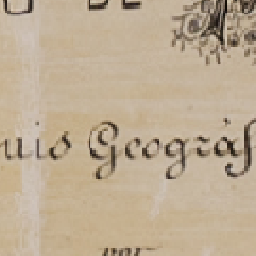 DE
uis Geográf
por